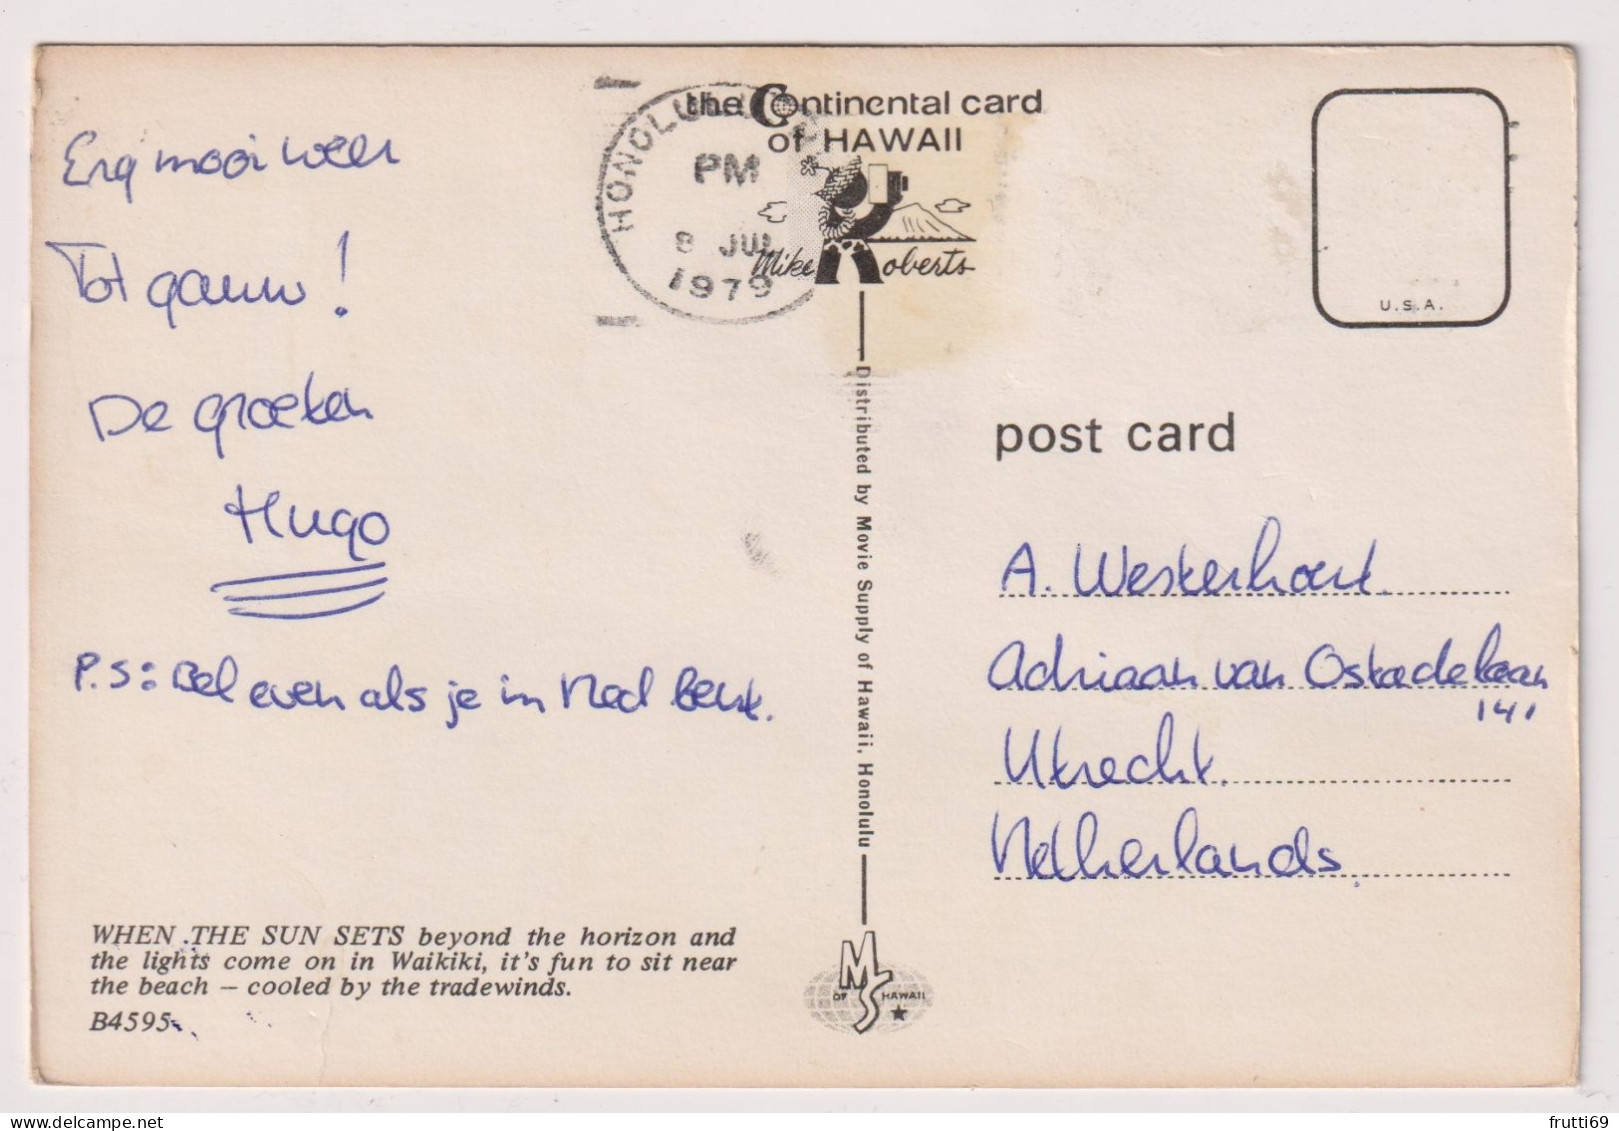 Erg mooi weer
Tot gauw!
De groeten
Hugo
P.S: Bel even als je in Ned bent.
WHEN THE SUN SETS beyond the horizon and
the lights come on in Waikiki, it's fun to sit near
the beach – cooled by the tradewinds.
B4595
HONOLULU
PM
8 JUL
1979
the Continental card
of HAWAII
Mike Roberts
Distributed by Movie Supply of Hawaii, Honolulu
MS
OF HAWAII
U.S.A.
post card
A. Westerhout.
Adriaan van Ostadelaan
141
Utrecht.
Netherlands.
frutti69